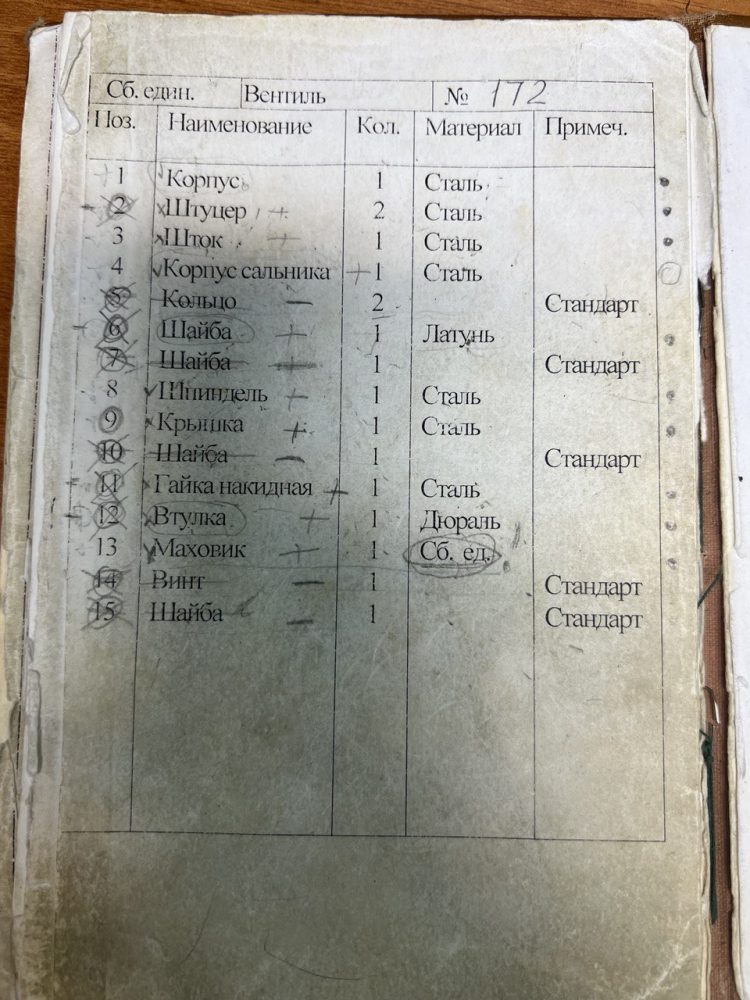 Сб. един. Вентиль № 172
Поз. Наименование Кол. Материал Примеч.
1 Корпус 1 Сталь
2 Штуцер + 2 Сталь
3 Шток + 1 Сталь
4 Корпус сальника + 1 Сталь
5 Кольцо — 2 Стандарт
6 Шайба + 1 Латунь
7 Шайба + 1 Стандарт
8 Шпиндель + 1 Сталь
9 Крышка + 1 Сталь
10 Шайба — 1 Стандарт
11 Гайка накидная + 1 Сталь
12 Втулка + 1 Дюраль
13 Маховик + 1 Сб. ед.
14 Винт — 1 Стандарт
15 Шайба — 1 Стандарт